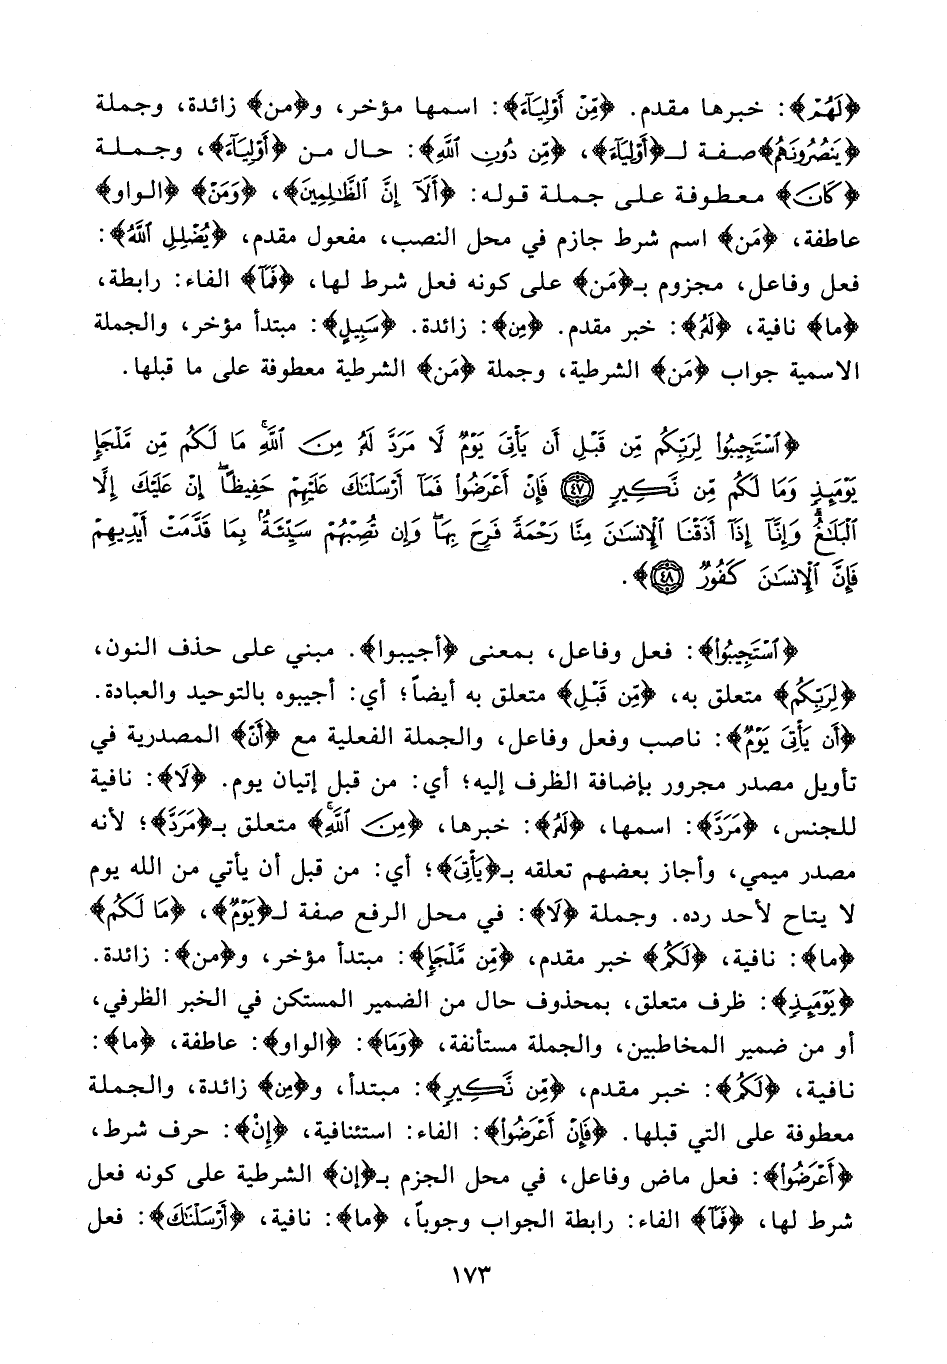 ﴿لَهُمْ﴾: خبرها مقدم. ﴿مِّنْ أَوْلِيَآءَ﴾: اسمها مؤخر، و﴿من﴾ زائدة، وجملة
﴿يَنصُرُونَهُم﴾صفـة لـ﴿أَوْلِيَآءَ﴾، ﴿مِّن دُونِ ٱللَّهِ﴾: حـال مـن ﴿أَوْلِيَآءَ﴾، وجـملـة
﴿كَانَ﴾ معـطـوفة عـلـى جـمـلة قـوله: ﴿أَلَآ إِنَّ ٱلظَّٰلِمِينَ﴾، ﴿وَمَنْ﴾ ﴿الـواو﴾
عاطفة، ﴿مَن﴾ اسم شرط جازم في محل النصب، مفعول مقدم، ﴿يُضْلِلِ ٱللَّهُ﴾:
فعل وفاعل، مجزوم بـ﴿مَن﴾ على كونه فعل شرط لها، ﴿فَمَآ﴾ الفاء: رابطة،
﴿ما﴾ نافية، ﴿لَهُۥ﴾: خبر مقدم. ﴿مِن﴾: زائدة. ﴿سَبِيلٍ﴾: مبتدأ مؤخر، والجملة
الاسمية جواب ﴿مَن﴾ الشرطية، وجملة ﴿مَن﴾ الشرطية معطوفة على ما قبلها.
﴿ٱسْتَجِيبُوا۟ لِرَبِّكُم مِّن قَبْلِ أَن يَأْتِىَ يَوْمٌ لَّا مَرَدَّ لَهُۥ مِنَ ٱللَّهِ ۚ مَا لَكُم مِّن مَّلْجَإٍ
يَوْمَئِذٍ وَمَا لَكُم مِّن نَّكِيرٍ ٤٧ فَإِنْ أَعْرَضُوا۟ فَمَآ أَرْسَلْنَٰكَ عَلَيْهِمْ حَفِيظًا ۖ إِنْ عَلَيْكَ إِلَّا
ٱلْبَلَٰغُ ۗ وَإِنَّآ إِذَآ أَذَقْنَا ٱلْإِنسَٰنَ مِنَّا رَحْمَةً فَرِحَ بِهَا ۖ وَإِن تُصِبْهُمْ سَيِّئَةٌۢ بِمَا قَدَّمَتْ أَيْدِيهِمْ
فَإِنَّ ٱلْإِنسَٰنَ كَفُورٌ ٤٨﴾.
﴿ٱسْتَجِيبُوا۟﴾: فعل وفاعل، بمعنى ﴿أجيبوا﴾. مبني على حذف النون،
﴿لِرَبِّكُم﴾ متعلق به، ﴿مِّن قَبْلِ﴾ متعلق به أيضاً؛ أي: أجيبوه بالتوحيد والعبادة.
﴿أَن يَأْتِىَ يَوْمٌ﴾: ناصب وفعل وفاعل، والجملة الفعلية مع ﴿أَنْ﴾ المصدرية في
تأويل مصدر مجرور بإضافة الظرف إليه؛ أي: من قبل إتيان يوم. ﴿لَا﴾: نافية
للجنس، ﴿مَرَدَّ﴾: اسمها، ﴿لَهُۥ﴾: خبرها، ﴿مِنَ ٱللَّهِ ۚ﴾ متعلق بـ﴿مَرَدَّ﴾؛ لأنه
مصدر ميمي، وأجاز بعضهم تعلقه بـ﴿يَأْتِىَ﴾؛ أي: من قبل أن يأتي من الله يوم
لا يتاح لأحد رده. وجملة ﴿لَا﴾: في محل الرفع صفة لـ﴿يَوْمٌ﴾، ﴿مَا لَكُم﴾
﴿ما﴾: نافية، ﴿لَكُم﴾ خبر مقدم، ﴿مِّن مَّلْجَإٍ﴾: مبتدأ مؤخر، و﴿من﴾: زائدة.
﴿يَوْمَئِذٍ﴾: ظرف متعلق، بمحذوف حال من الضمير المستكن في الخبر الظرفي،
أو من ضمير المخاطبين، والجملة مستأنفة، ﴿وَمَا﴾: ﴿الواو﴾: عاطفة، ﴿ما﴾:
نافية، ﴿لَكُم﴾: خبر مقدم، ﴿مِّن نَّكِيرٍ﴾: مبتدأ، و﴿مِن﴾ زائدة، والجملة
معطوفة على التي قبلها. ﴿فَإِنْ أَعْرَضُوا۟﴾: الفاء: استئنافية، ﴿إِنْ﴾: حرف شرط،
﴿أَعْرَضُوا۟﴾: فعل ماض وفاعل، في محل الجزم بـ﴿إن﴾ الشرطية على كونه فعل
شرط لها، ﴿فَمَآ﴾ الفاء: رابطة الجواب وجوباً، ﴿ما﴾: نافية، ﴿أَرْسَلْنَٰكَ﴾: فعل
١٧٣